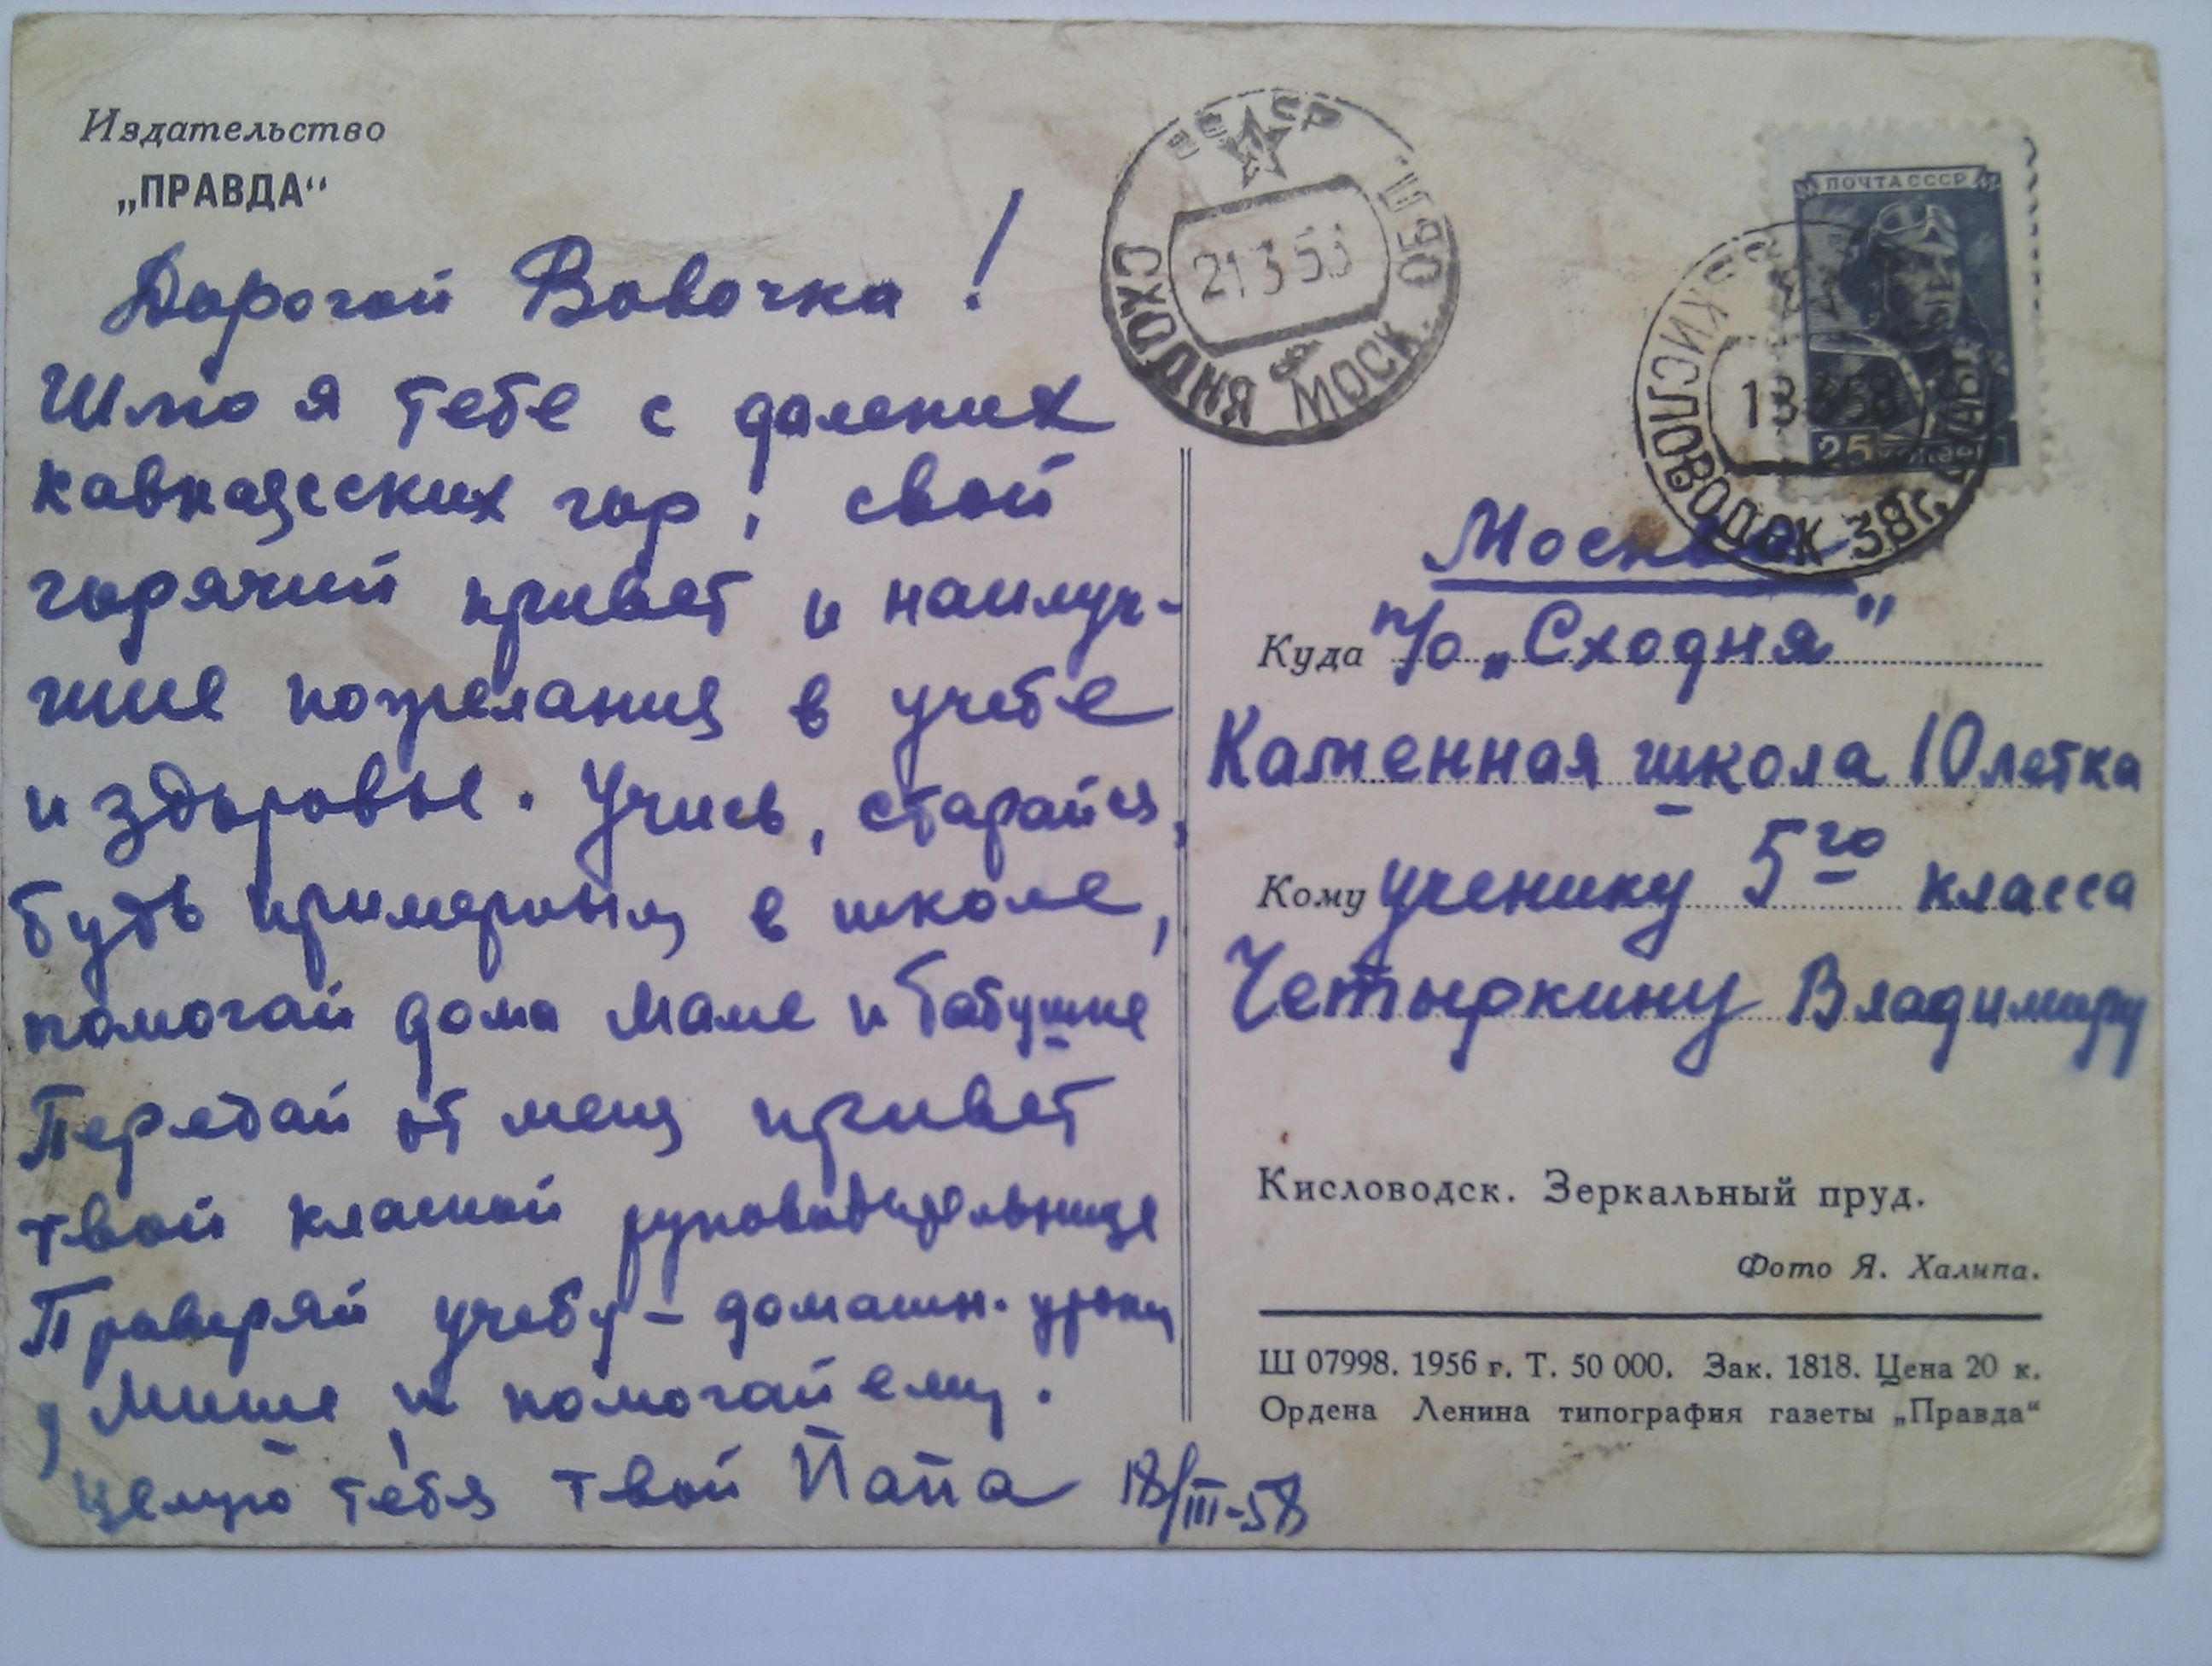 Издательство
„ПРАВДА“
Дорогой Вовочка!
Шлю я тебе с далеких
кавказских гор, свой
горячий привет и наилуч-
шие пожелания в учебе
и здоровье. Учись, старайся,
будь примерным в школе,
помогай дома маме и бабушке
Передай от меня привет
твоей класной руководительнице
Проверяй учебу - домашн. уроки
у Мише и помогай ему.
целую тебя твой Папа 18/III-58
СХОДНЯ МОСК. ОБЛ.
21 3 58
ПОЧТА СССР
25
КИСЛОВОДСК
Москва
Куда п/о „Сходня"
Каменная школа 10 летка
Кому ученику 5го класса
Четыркину Владимиру
Кисловодск. Зеркальный пруд.
Фото Я. Халипа.
Ш 07998. 1956 г. Т. 50 000. Зак. 1818. Цена 20 к.
Ордена Ленина типография газеты „Правда“